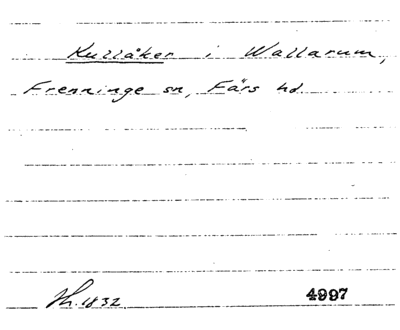 Kullåker i Wallarum,
Frenninge sn, Färs hd.
Th. 1832. 4997